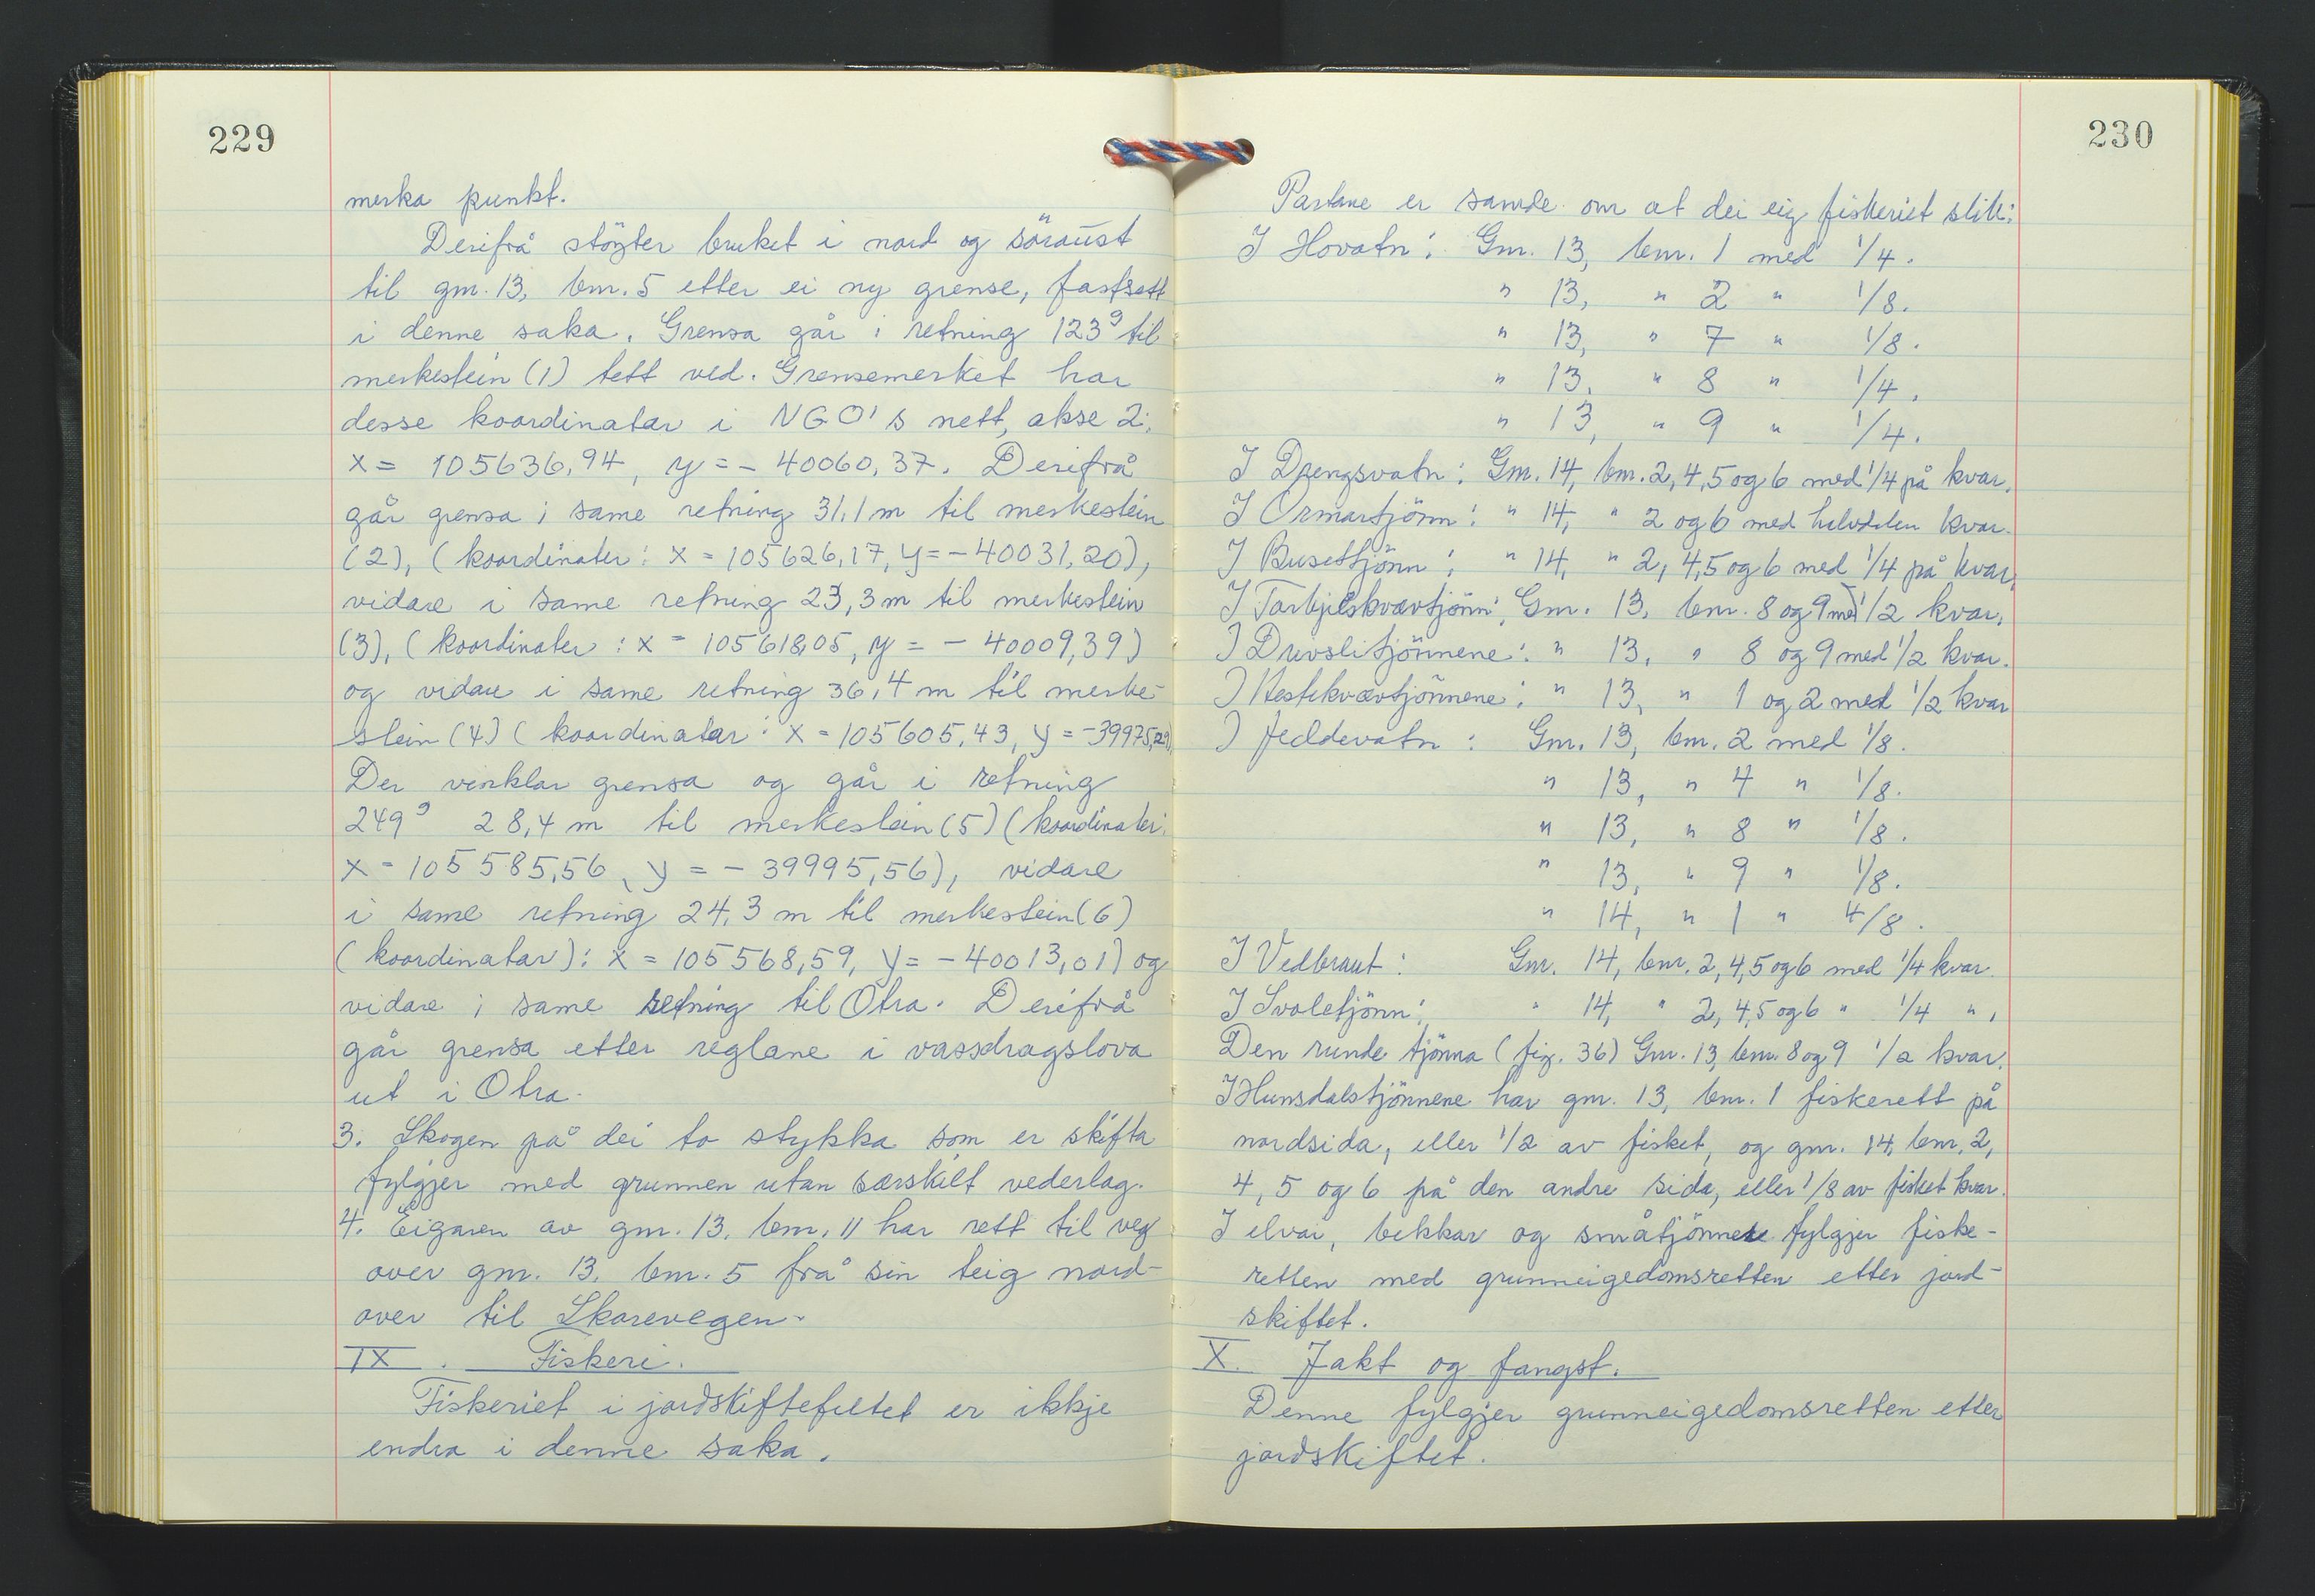 229
merka punkt.
Derifrå stöyter bruket i nord og söraust
til gnr. 13, bnr. 5 etter ei ny grense, fastsett
i denne saka. Grensa går i retning 123ᵍ til
merkestein (1) tett ved. Grensemerket har
desse koordinatar i NGO's nett, akse 2:
x = 105636,94, y = - 40060,37. Derifrå
går grensa i same retning 31,1 m til merkestein
(2), (koordinater: x = 105626,17, y = - 40031,20),
vidare i same retning 23,3 m til merkestein
(3), (koordinater: x = 105618,05, y = - 40009,39)
og vidare i same retning 36,4 m til merke-
stein (4) (koordinatar: x = 105605,43, y = -39975,29).
Der vinklar grensa og går i retning
249ᵍ 28,4 m til merkestein (5) (koordinater:
x = 105585,56, y = - 39995,56), vidare
i same retning 24,3 m til merkestein (6)
(koordinatar): x = 105568,59, y = - 40013,01) og
vidare i same retning til Otra. Derifrå
går grensa etter reglane i vassdragslova
ut i Otra.
3. Skogen på dei to stykka som er skifta
fylgjer med grunnen utan særskilt vederlag.
4. Eigaren av gnr. 13, bnr. 11 har rett til veg
over gnr. 13, bnr. 5 frå sin teig nord-
over til Skarevegen.
IX. Fiskeri.
Fiskeriet i jordskiftefeltet er ikkje
endra i denne saka.
230
Partane er samde om at dei eig fiskeriet slik:
I Hovatn: Gnr. 13, bnr. 1 med 1/4.
" 13, " 2 " 1/8.
" 13, " 7 " 1/8.
" 13, " 8 " 1/4.
" 13, " 9 " 1/4.
I Drengsvatn: Gnr. 14, bnr. 2, 4, 5 og 6 med 1/4 på kvar.
I Ormartjönn: " 14, " 2 og 6 med halvdelen kvar.
I Busettjönn: " 14, " 2, 4, 5 og 6 med 1/4 på kvar.
I Tarbjelskvævtjönn: Gnr. 13, bnr. 8 og 9 med 1/2 kvar.
I Druvslitjönnene: " 13, " 8 og 9 med 1/2 kvar.
I Hestekvævtjönnene: " 13, " 1 og 2 med 1/2 kvar
I Jeddevatn: Gnr. 13, bnr. 2 med 1/8.
" 13, " 4 " 1/8.
" 13, " 8 " 1/8.
" 13, " 9 " 1/8.
" 14, " 1 " 4/8.
I Vedbraut: Gnr. 14, bnr. 2, 4, 5 og 6 med 1/4 kvar.
I Svoletjönn: " 14, " 2, 4, 5 og 6 " 1/4 ".
Den runde tjönna (fig. 36) Gnr. 13, bnr. 8 og 9 1/2 kvar.
I Hunsdalstjönnene har gnr. 13, bnr. 1 fiskerett på
nordsida, eller 1/2 av fisket, og gnr. 14, bnr. 2,
4, 5 og 6 på den andre sida, eller 1/8 av fisket kvar.
I elvar, bekkar og småtjönnene fylgjer fiske-
retten med grunneigedomsretten etter jord-
skiftet.
X. Jakt og fangst.
Denne fylgjer grunneigedomsretten etter
jordskiftet.